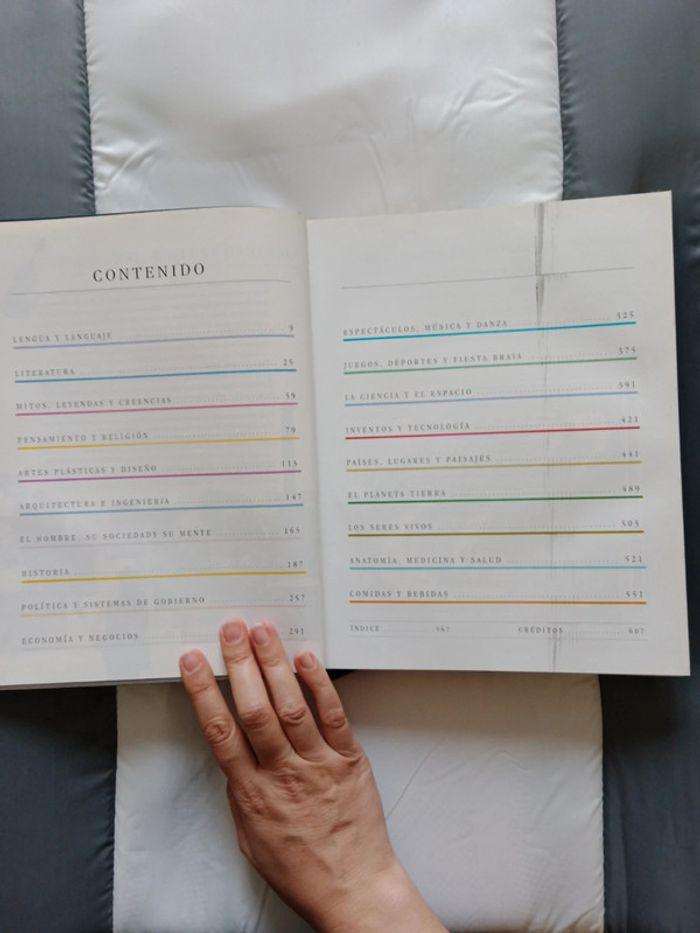 CONTENIDO
LENGUA Y LENGUAJE 9
LITERATURA 25
MITOS, LEYENDAS Y CREENCIAS 59
PENSAMIENTO Y RELIGIÓN 79
ARTES PLÁSTICAS Y DISEÑO 113
ARQUITECTURA E INGENIERÍA 147
EL HOMBRE, SU SOCIEDADY SU MENTE 165
HISTORIA 187
POLÍTICA Y SISTEMAS DE GOBIERNO 257
ECONOMÍA Y NEGOCIOS 291
ESPECTÁCULOS, MÚSICA Y DANZA 325
JUEGOS, DEPORTES Y FIESTA BRAVA 375
LA CIENCIA Y EL ESPACIO 391
INVENTOS Y TECNOLOGÍA 421
PAÍSES, LUGARES Y PAISAJES 441
EL PLANETA TIERRA 489
LOS SERES VIVOS 503
ANATOMÍA, MEDICINA Y SALUD 521
COMIDAS Y BEBIDAS 551
ÍNDICE 567 CRÉDITOS 607